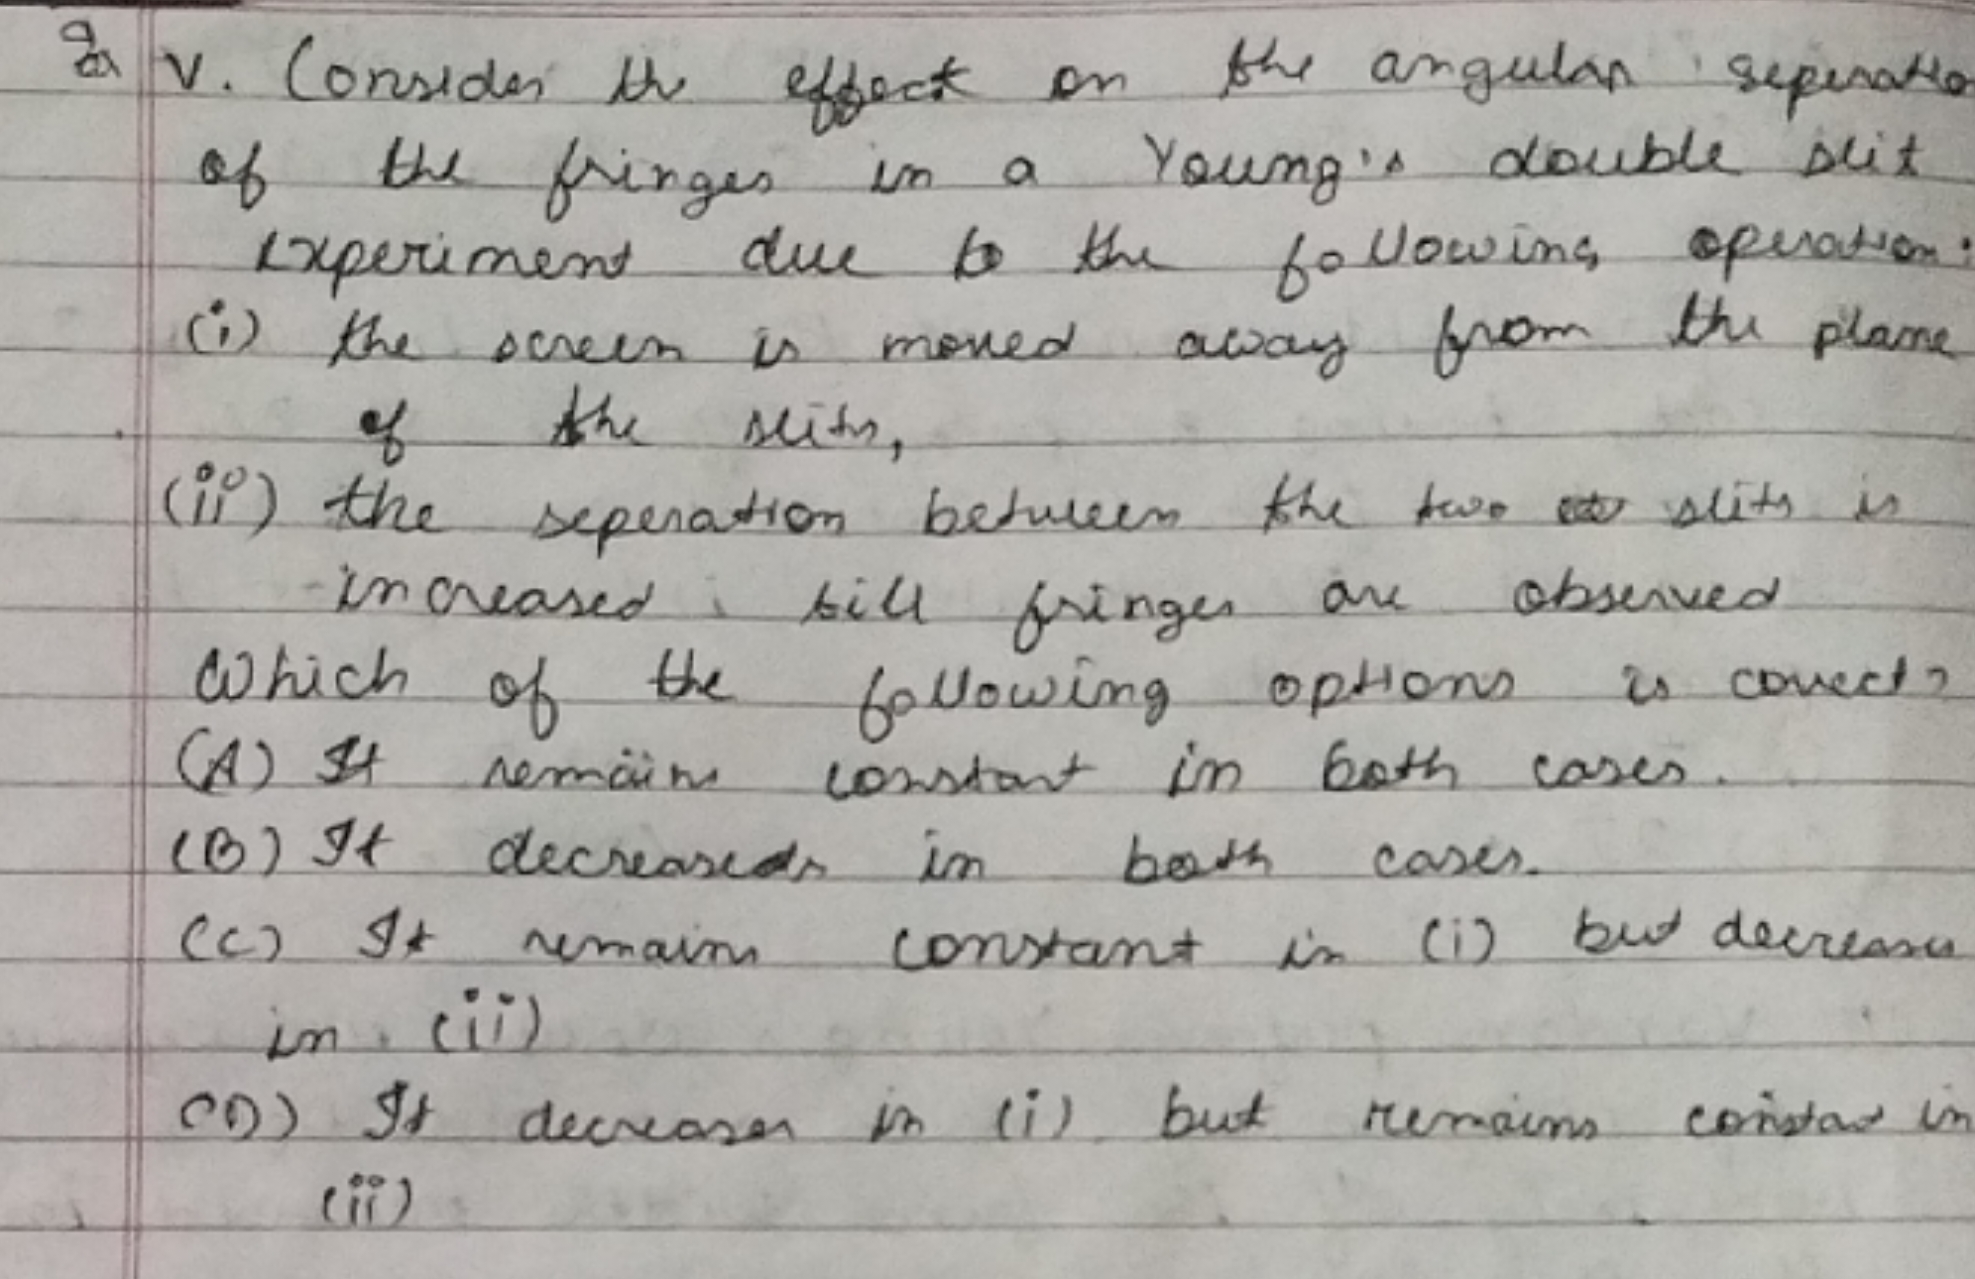 V. Consider the effect on the angular seperatio
of the fringes in a Young's double slit
experiment due to the following operation:
(i) the screen is moved away from the plane
of the slits,
(ii) the seperation between the two slits is
increased till fringes are observed
Which of the following options is correct?
(A) It remains constant in both cases.
(B) It decreases in both cases.
(C) It remains constant in (i) but decreases
in (ii)
(D) It decreases in (i) but remains constat in
(ii)